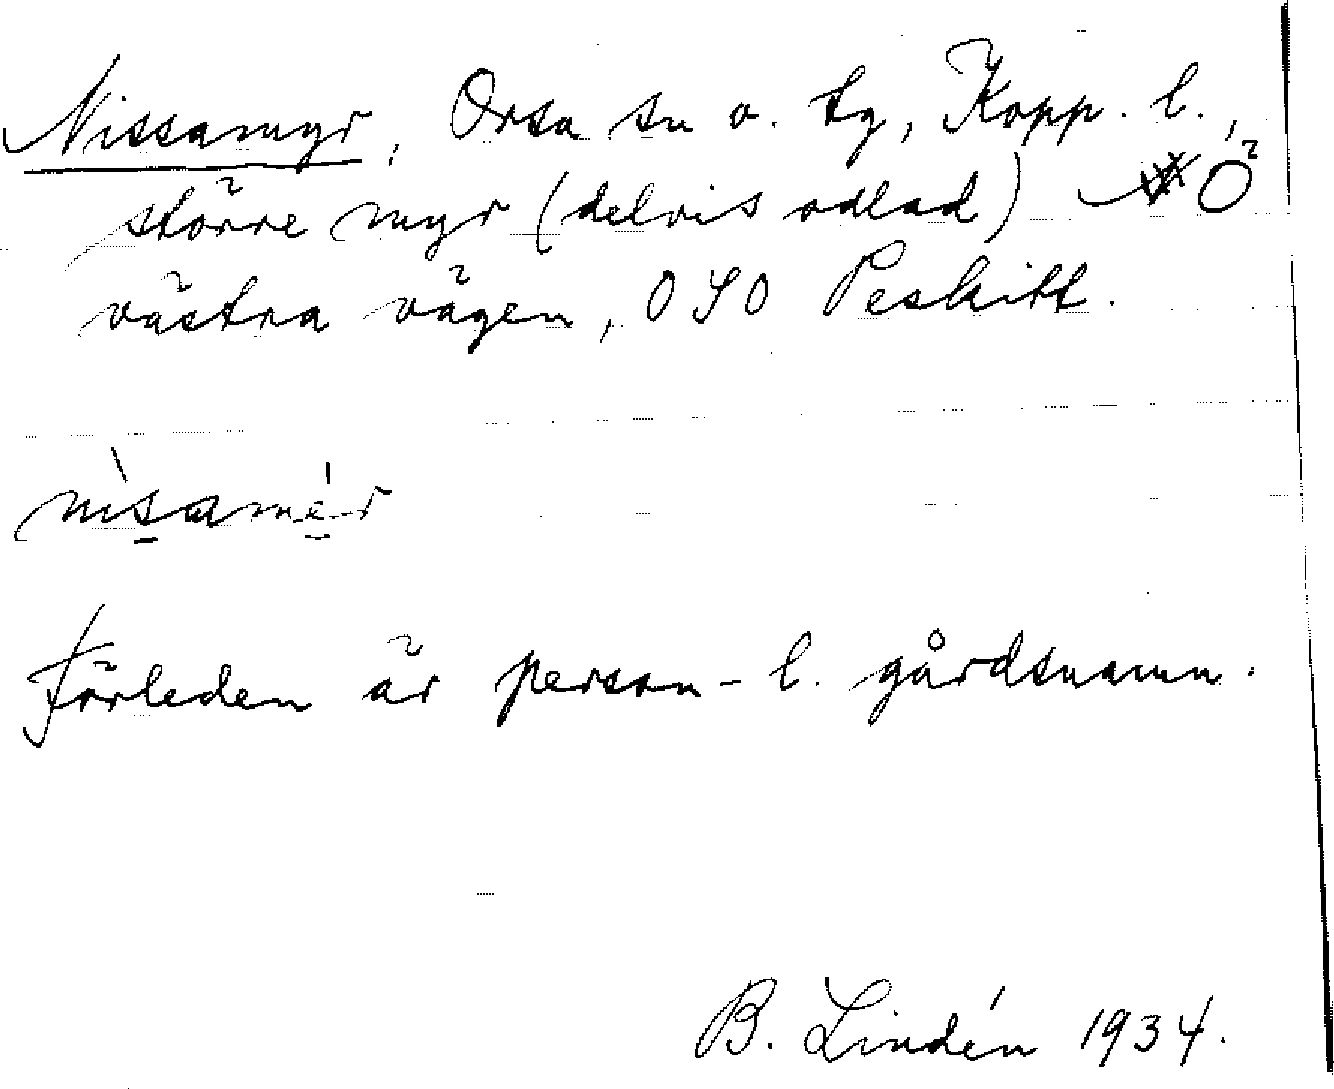 Nissamyr, Orsa sn o. tg, Kopp. l.,
större myr (delvis odlad) Ö
västra vägen, OSO Peskitt.
nisamér
Förleden är person- l. gårdsnamn.
B. Lindén 1934.